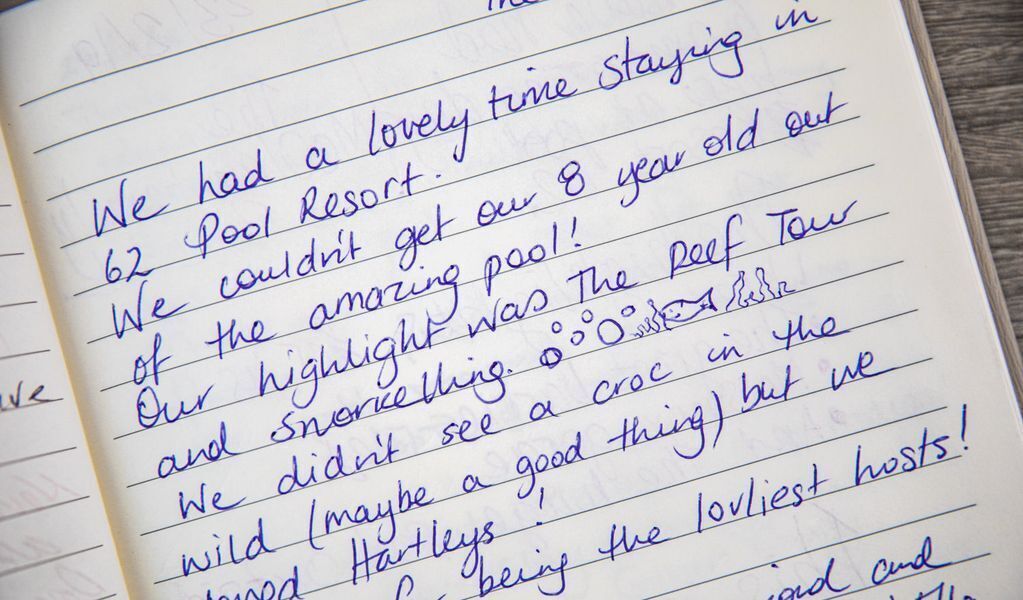 We had a lovely time staying in
62 Pool Resort.
We couldn't get our 8 year old out
of the amazing pool!
Our highlight was The Reef Tour
and snorkelling.
We didn't see a croc in the
wild (maybe a good thing) but we
Hartleys!
being the lovliest hosts!
and